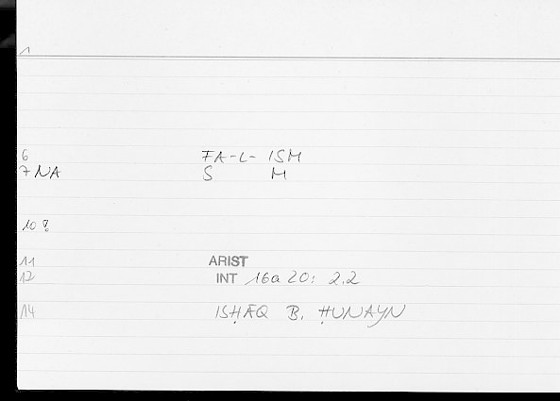 1
6 FA-L- ISM
7 NA S M
10 ?
11 ARIST
12 INT 16a 20: 2.2
14 ISḤĀQ B. ḤUNAYN